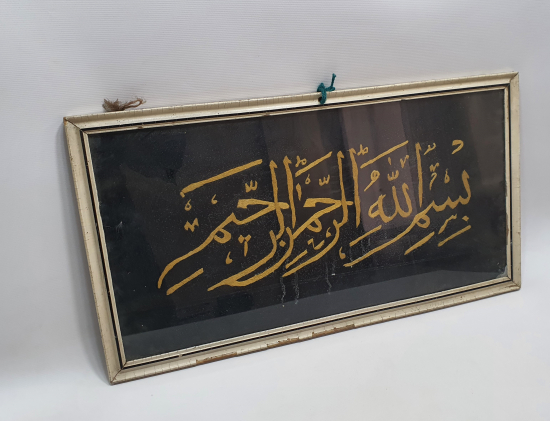 بِسْمِ اللهِ الرَّحْمَٰنِ الرَّحِيمِ